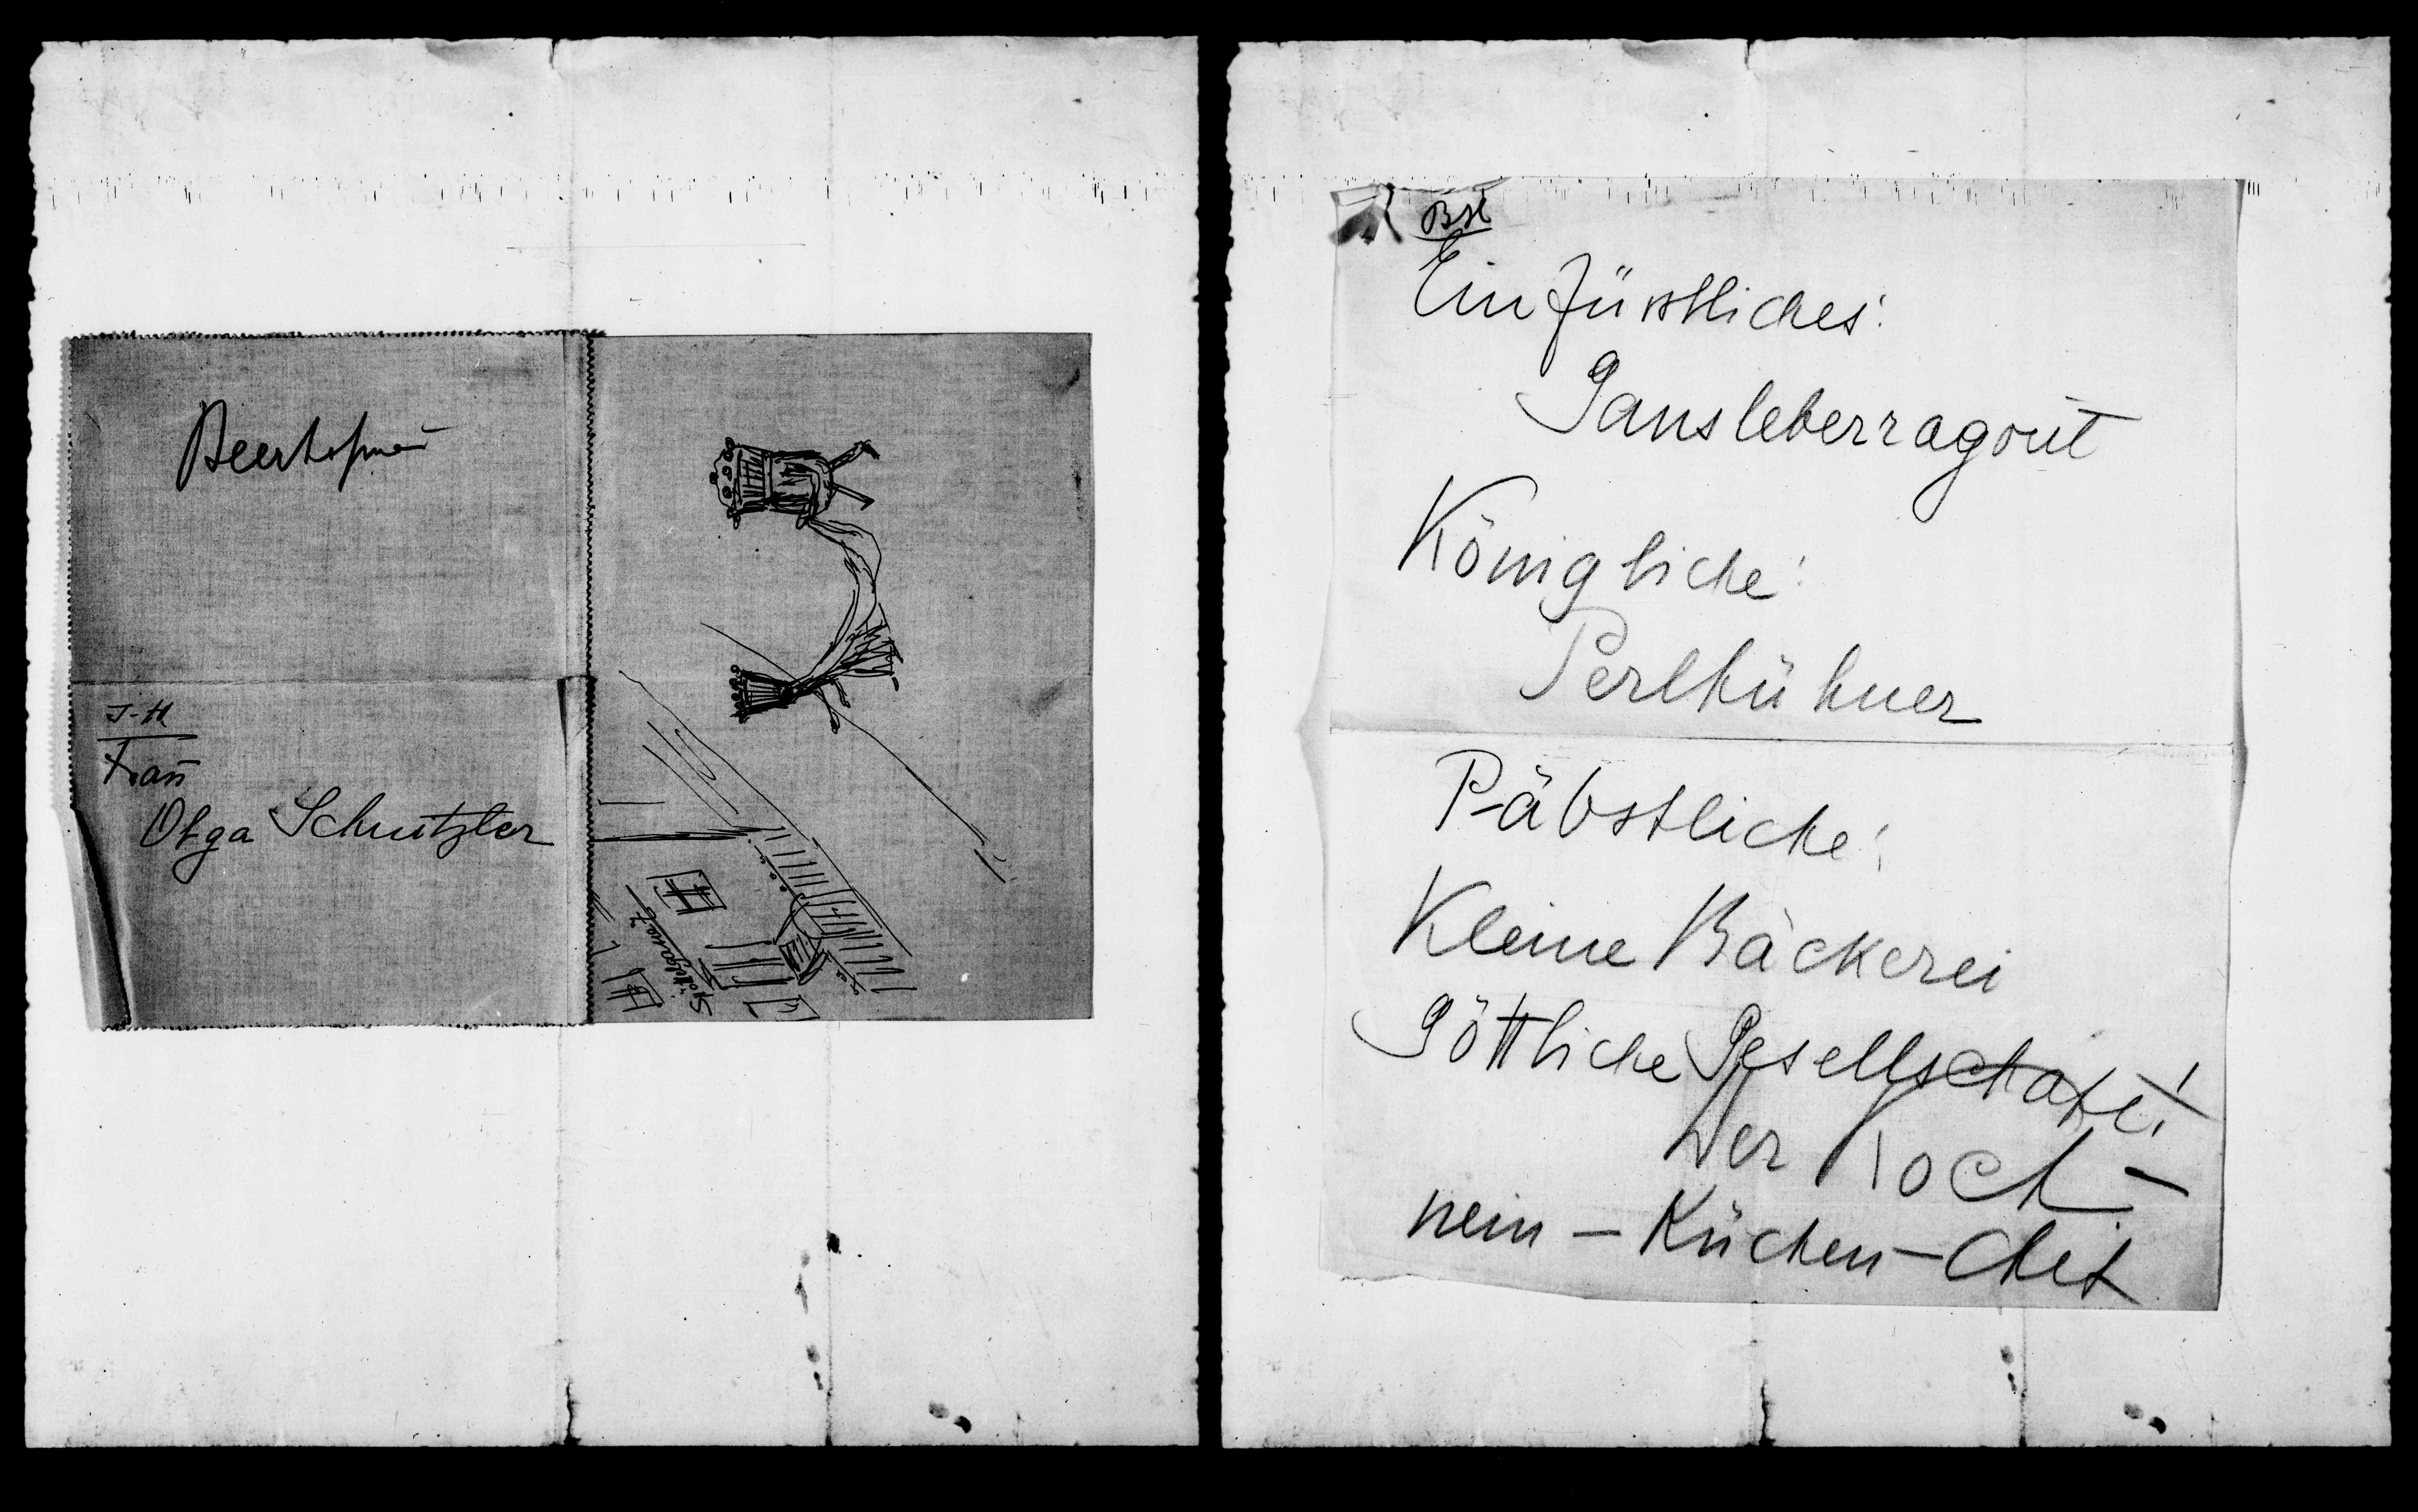 Beerhofmann
I-H
Frau
Olga Schnitzler
Spöttelgasse
7
BH
Ein fürstliches:
Gansleberragout
Königliche:
Perlhühner
Päbstliche:
Kleine Bäckerei
Göttliche Gesellschaft!
Der Koch –
nein – Küchen – Chef